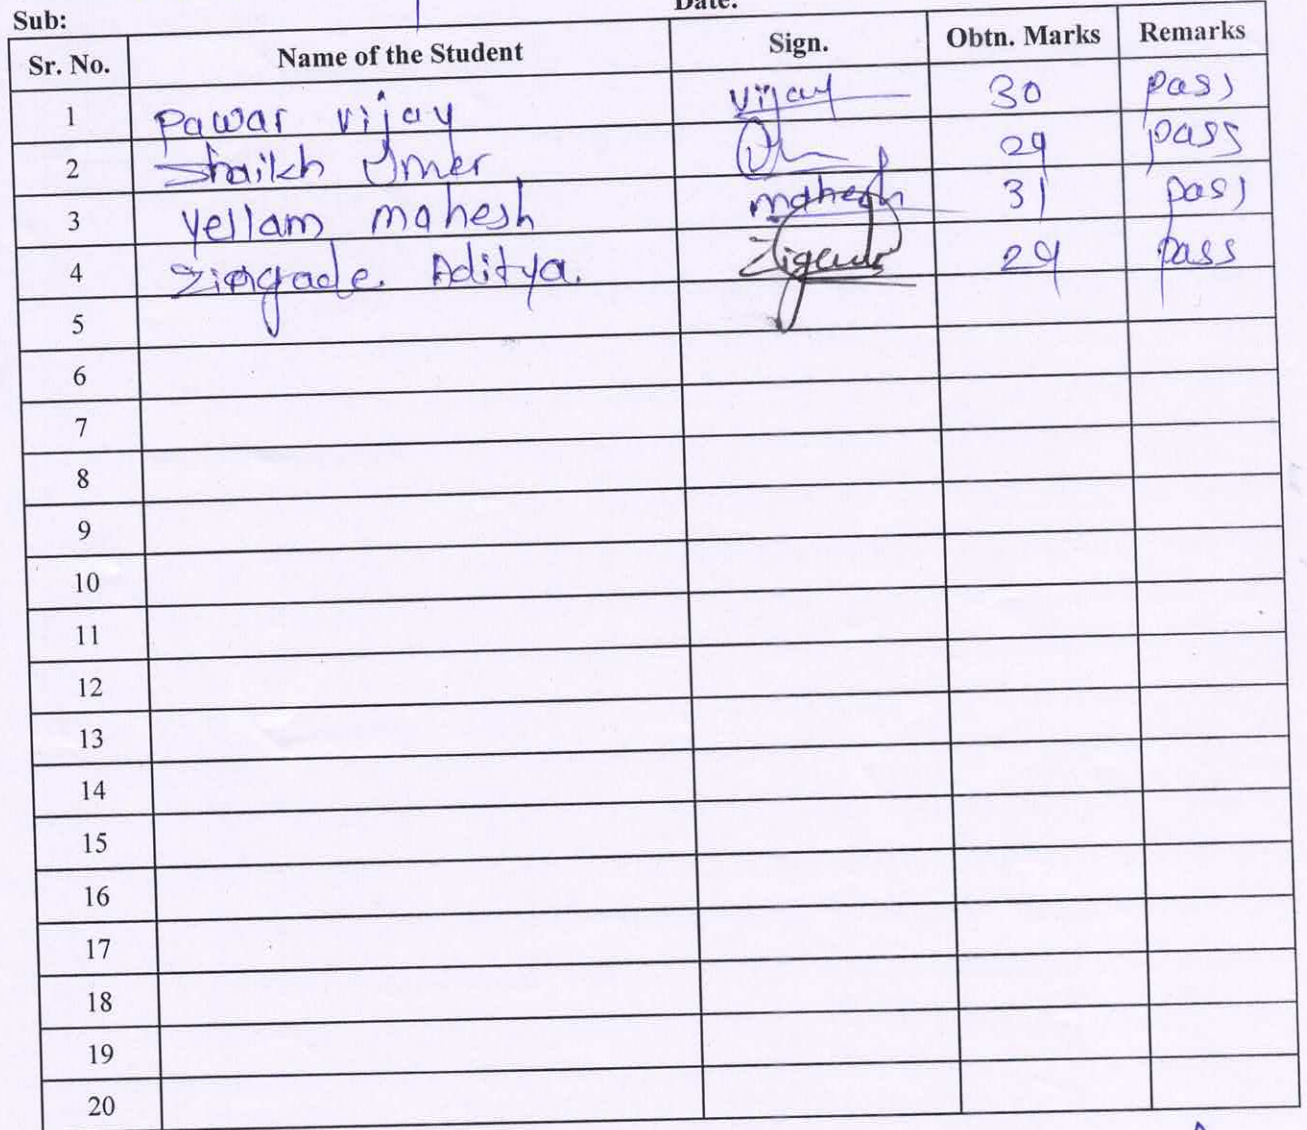 Sub: Date:
Sr. No. Name of the Student Sign. Obtn. Marks Remarks
1 Pawar vijay vijay 30 pass
2 Shaikh Umer 29 pass
3 Yellam mahesh mahesh 31 pass
4 Aditya. 29 pass
5
6
7
8
9
10
11
12
13
14
15
16
17
18
19
20